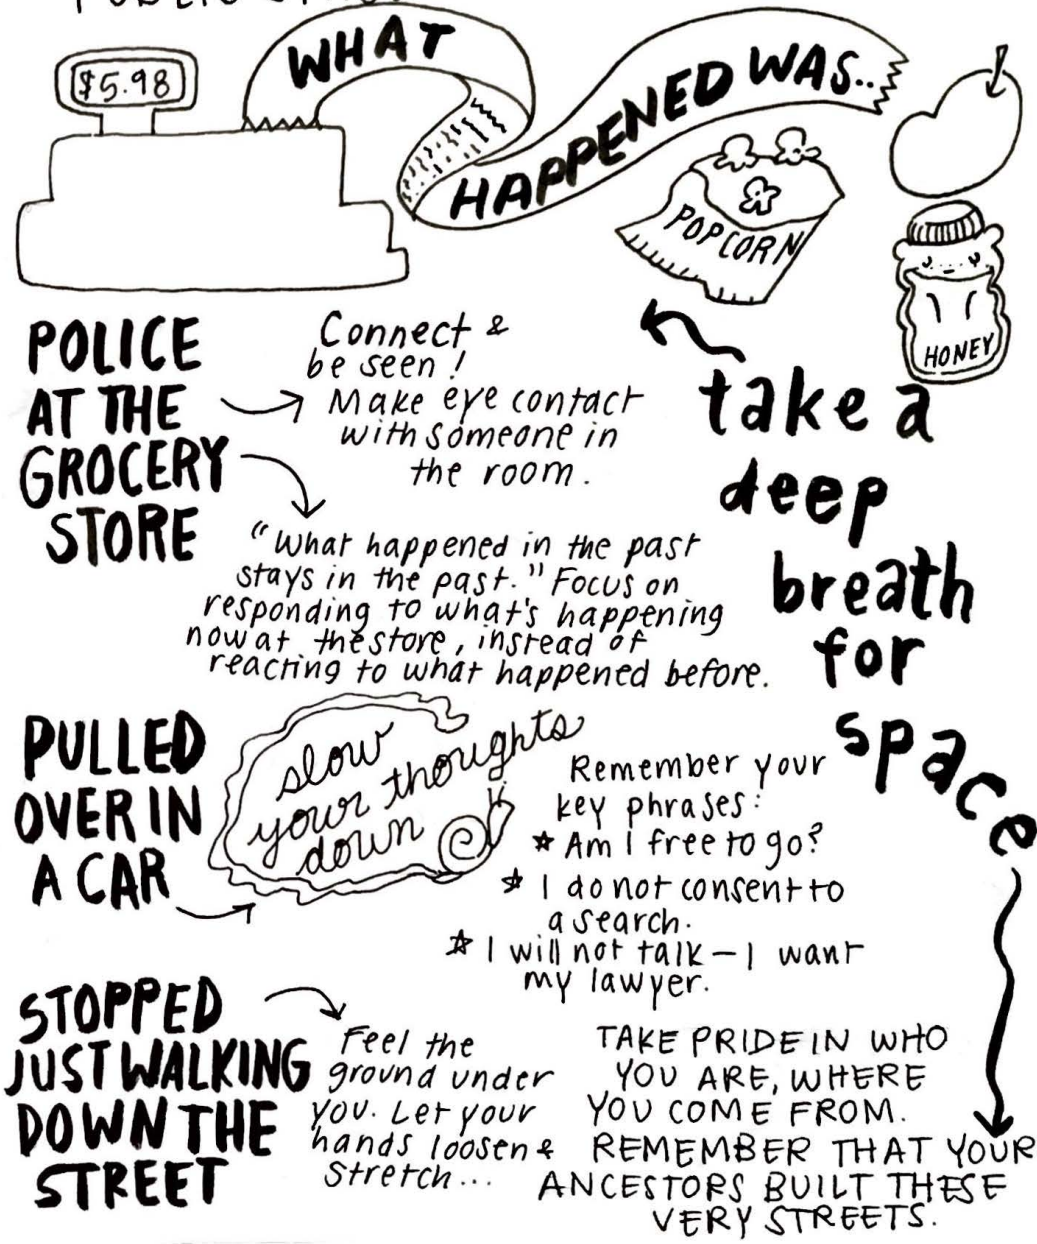 $5.98
WHAT
HAPPENED WAS...
POPCORN
HONEY
POLICE
AT THE
GROCERY
STORE
Connect &
be seen!
Make eye contact
with someone in
the room.
"What happened in the past
stays in the past." Focus on
responding to what's happening
now at the store, instead of
reacting to what happened before.
take a
deep
breath
for
space
PULLED
OVER IN
A CAR
slow
your thoughts
down
Remember your
key phrases:
★ Am I free to go?
★ I do not consent to
a search.
★ I will not talk – I want
my lawyer.
STOPPED
JUST WALKING
DOWN THE
STREET
Feel the
ground under
you. Let your
hands loosen &
stretch...
TAKE PRIDE IN WHO
YOU ARE, WHERE
YOU COME FROM.
REMEMBER THAT YOUR
ANCESTORS BUILT THESE
VERY STREETS.